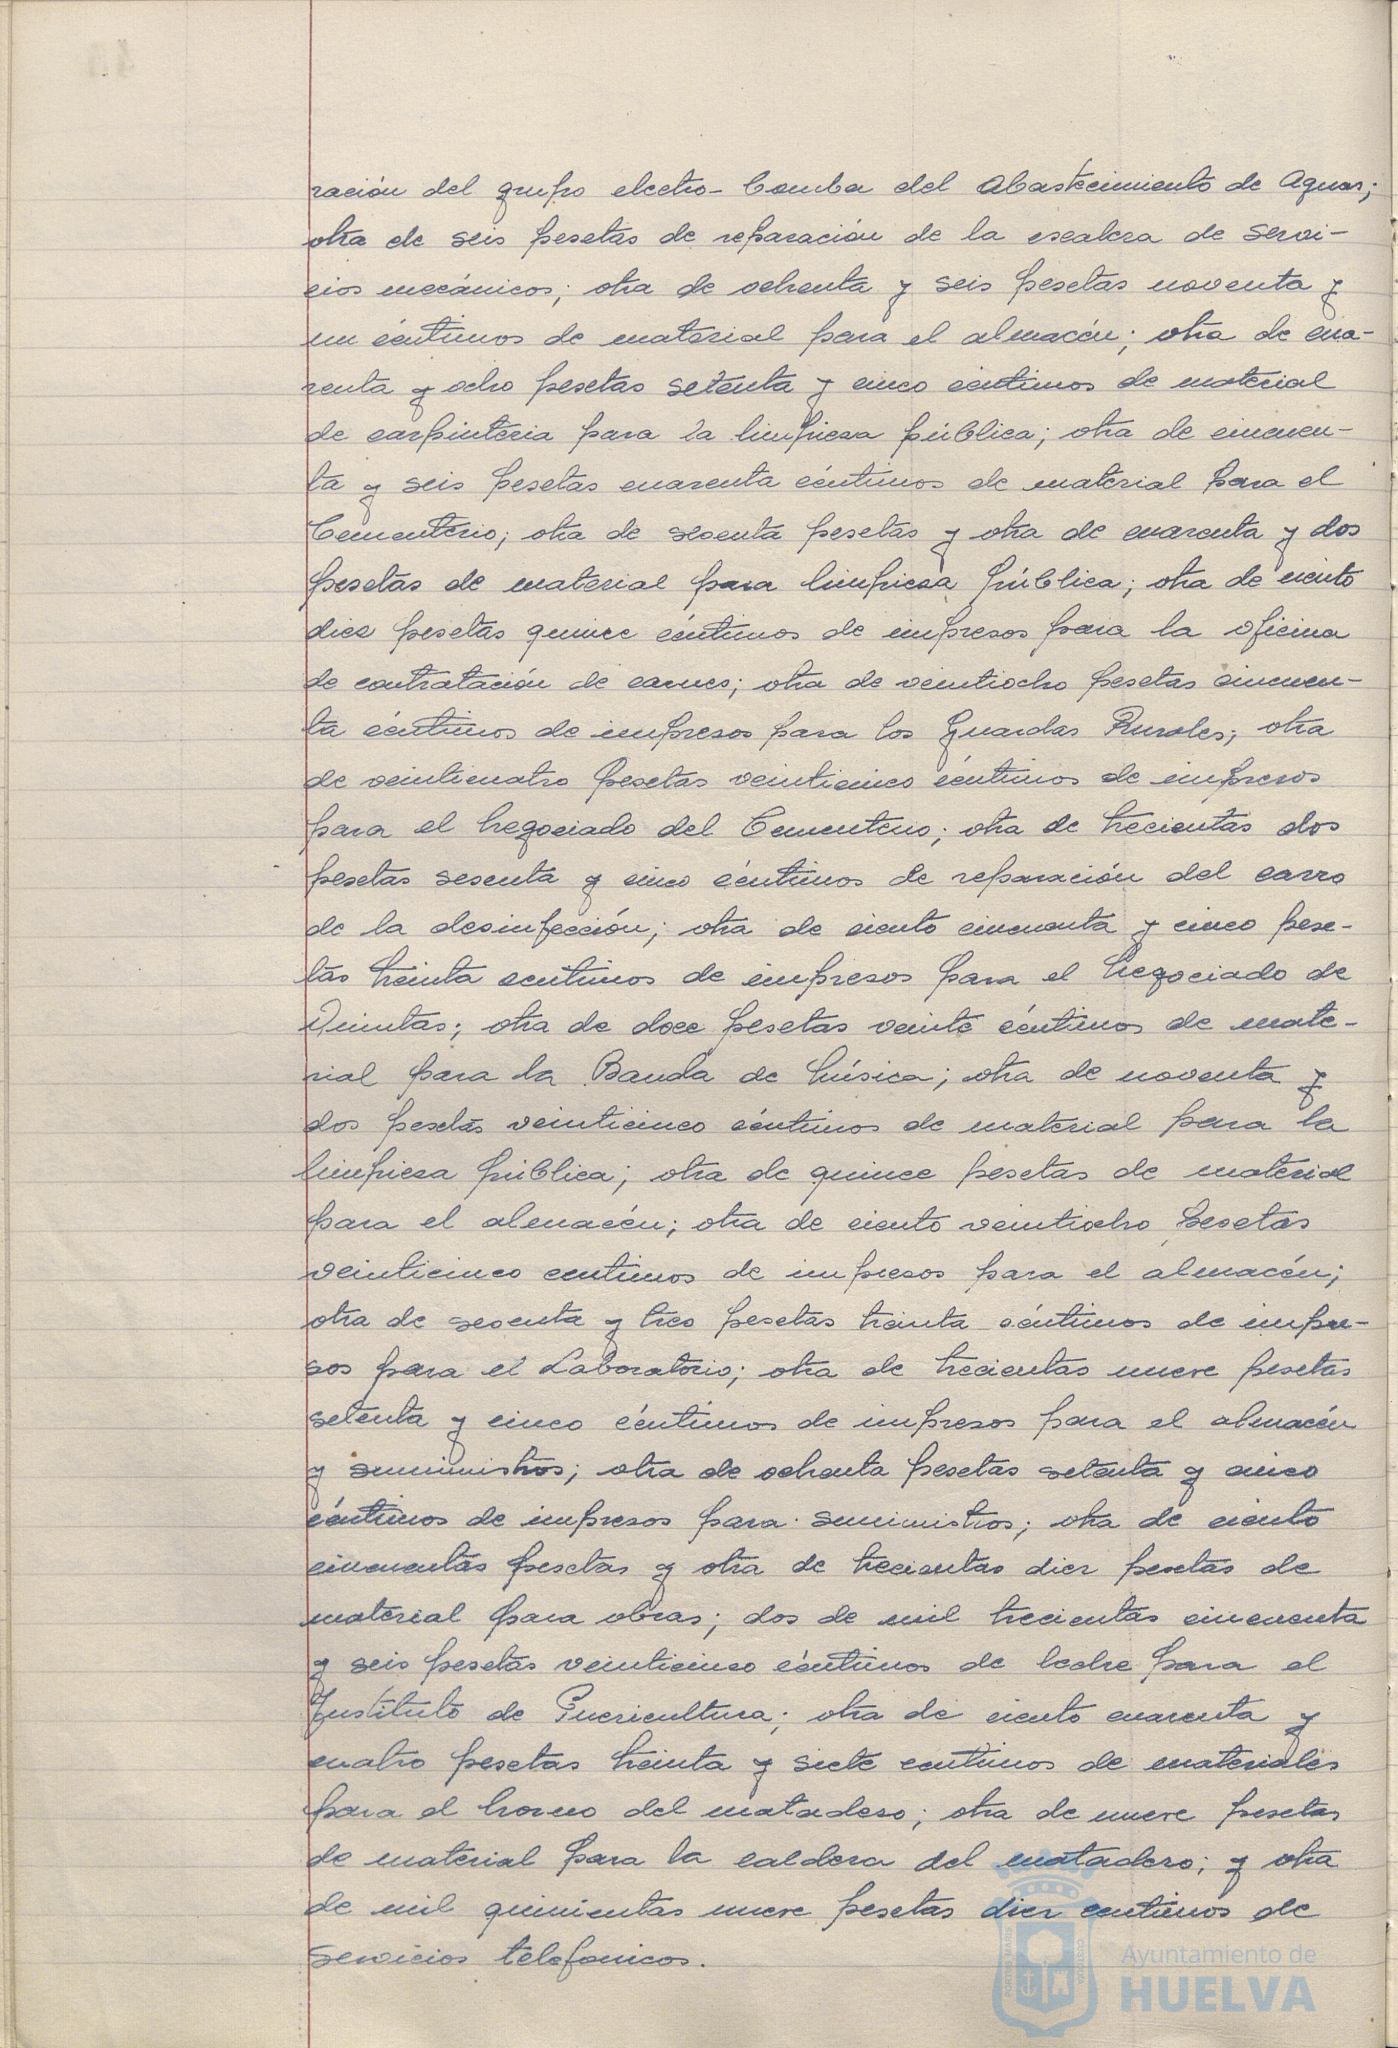 ración del grupo electro-bomba del Abastecimiento de Aguas;
otra de seis pesetas de reparación de la escalera de servi-
cios mecánicos; otra de ochenta y seis pesetas noventa y
un céntimos de material para el almacén; otra de cua-
renta y ocho pesetas setenta y cinco céntimos de material
de carpintería para la limpieza pública; otra de cincuen-
ta y seis pesetas cuarenta céntimos de material para el
Cementerio; otra de sesenta pesetas y otra de cuarenta y dos
pesetas de material para limpieza pública; otra de ciento
diez pesetas quince céntimos de impresos para la oficina
de contratación de carnes; otra de veintiocho pesetas cincuen-
ta céntimos de impresos para los Guardas Rurales; otra
de veinticuatro pesetas veinticinco céntimos de impresos
para el Negociado del Cementerio; otra de trecientas dos
pesetas sesenta y cinco céntimos de reparación del carro
de la desinfección; otra de ciento cincuenta y cinco pese-
tas treinta centimos de impresos para el Negociado de
Quintas; otra de doce pesetas veinte céntimos de mate-
rial para la Banda de Música; otra de noventa y
dos pesetas veinticinco céntimos de material para la
limpieza pública; otra de quince pesetas de material
para el almacén; otra de ciento veintiocho pesetas
veinticinco centimos de impresos para el almacén;
otra de sesenta y tres pesetas treinta céntimos de impre-
sos para el Laboratorio; otra de trecientas nueve pesetas
setenta y cinco céntimos de impresos para el almacén
y suministros; otra de ochenta pesetas setenta y cinco
céntimos de impresos para suministros; otra de ciento
cincuentas pesetas y otra de trecientas diez pesetas de
material para obras; dos de mil trecientas cincuenta
y seis pesetas veinticinco céntimos de leche para el
Instituto de Puericultura; otra de ciento cuarenta y
cuatro pesetas treinta y siete centimos de materiales
para el horno del matadero; otra de nueve pesetas
de material para la caldera del matadero; y otra
de mil quinientas nueve pesetas diez centimos de
servicios telefonicos.
Ayuntamiento de
HUELVA